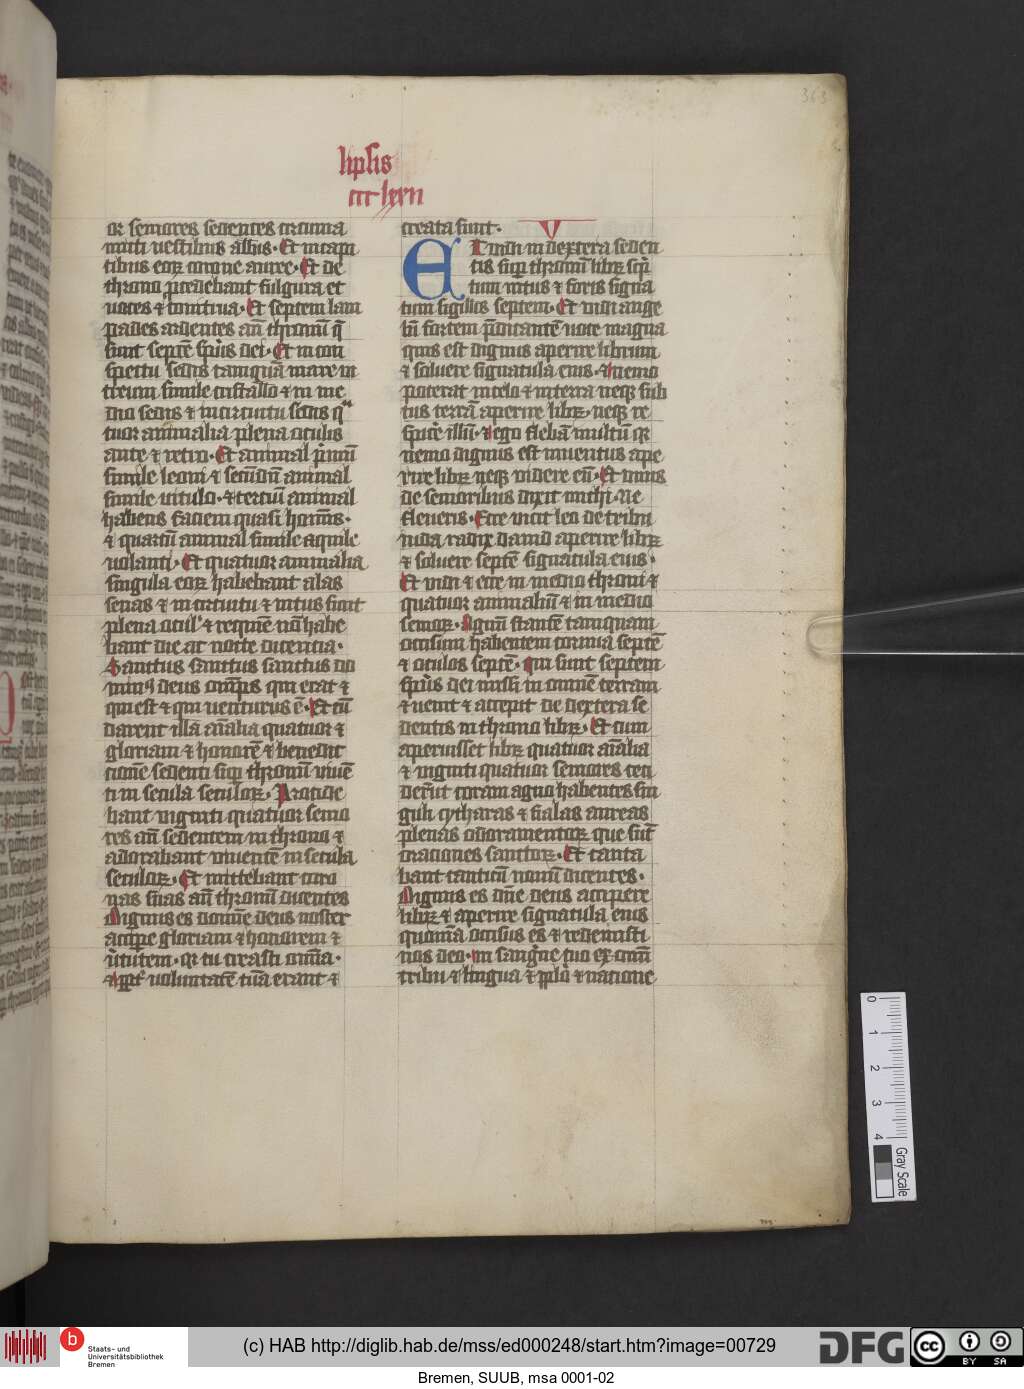 363
lipsis
ccclxxn
or seniores sedentes circuma
micti vestibus albis· Et in capi
tibus eorꝝ corone auree· Et de
throno procedebant fulgura et
voces ⁊ tonitrua· Et septem lam
pades ardentes an̄ thronū q̄
sunt septē spūs dei· Et in con
spectu sedis tanquā mare vi
treum simile cristallo ⁊ in me
dio sedis ⁊ in circuitu sedis qᵃ
tuor animalia plena oculis
ante ⁊ retro· Et animal pͥmū
simile leoni ⁊ secūdū animal
simile vitulo· ⁊ terciū animal
habens faciem quasi homīs·
⁊ quartū animal simile aquile
volanti· Et quatuor animalia
singula eorꝝ habebant alas
senas ⁊ in circuitu ⁊ intus sunt
plena ocul' ⁊ requiē nō habe
bant die ac nocte dicentia·
Sanctus sanctus sanctus do
minꝰ deus omps qui erat ⁊
qui est ⁊ qui venturus ē· Et cū
darent illa aīalia quatuor ⁊
gloriam ⁊ honorē ⁊ benedic
tionē sedenti suꝑ thronū vivē
ti in secula seculorꝝ· Procide
bant viginti quatuor senio
res an̄ sedentem in throno ⁊
adorabant viventē in secula
seculorꝝ· Et mittebant coro
nas suas an̄ thronū dicentes
Dignus es domīe deus noster
accipe gloriam ⁊ honorem ⁊
v̓tutem· qr tu creasti om̄ia·
⁊ ꝓpt' voluntatē tuā erant ⁊
creata sunt· V
Et vidi in dextera seden
tis suꝑ thronū librꝝ scͥp
tum intus ⁊ foris signa
tum sigillis septem· Et vidi ange
lū fortem p̄dicantē voce magna
quis est dignus aperire librum
⁊ solvere signacula eius· ⁊ nemo
poterat in celo ⁊ in terra neqꝫ sub
tus terrā aperire librꝝ· neqꝫ re
spicͤe illū· ⁊ ego flebā multū qr
nemo dignus est inventus ape
rire librꝝ neqꝫ videre eū· Et unus
de senioribus dixit michi· Ne
fleveris· Ecce vicit leo de tribu
iuda radix david aperire librꝝ
⁊ solvere septē signacula eius·
Et vidi ⁊ ecce in medio throni ⁊
quatuor animaliū ⁊ in medio
seniorꝝ· Agnū stantē tamquam
occisum habentem cornua septē
⁊ oculos septē· qui sunt septem
spūs dei missi in omnē terram
⁊ venit ⁊ accepit de dextera se
dentis in throno librꝝ· Et cum
aperuisset librꝝ quatuor aīalia
⁊ viginti quatuor seniores ceci
derūt coram agno habentes sin
guli cytharas ⁊ fialas aureas
plenas odoramentorꝝ que sūt
oraciones sanctorꝝ· Et canta
bant canticū novū dicentes·
Dignus es dn̄e deus accipere
librꝝ ⁊ aperire signacula eius
quonīa occisus es ⁊ redemisti
nos deo· in sangͥne tuo ex om̄i
tribu ⁊ lingua ⁊ pplo ⁊ natione
0 1 2 3 4
Gray Scale
b
Staats- und
Universitätsbibliothek
Bremen
(c) HAB http://diglib.hab.de/mss/ed000248/start.htm?image=00729
DFG
cc BY SA
Bremen, SUUB, msa 0001-02